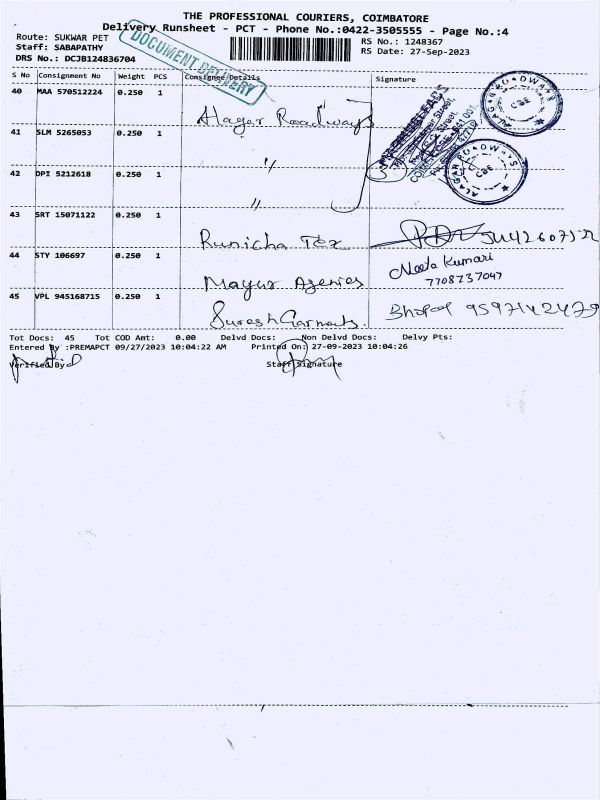 THE PROFESSIONAL COURIERS, COIMBATORE
Delivery Runsheet - PCT - Phone No.:0422-3505555 - Page No.:4
Route: SUKWAR PET
RS No.: 1248367
Staff: SABAPATHY
RS Date: 27-Sep-2023
DRS No.: DCJB124836704
DOCUMENT DELIVERY
S No Consignment No Weight PCS Consignee/Details Signature
40 MAA 570512224 0.250 1 Alagar Roadways
ALAGAR ROADWAYS CBE
41 SLM 5265053 0.250 1 "
ALAGAR ROADWAYS CBE
42 DPI 5212618 0.250 1 "
43 SRT 15071122 0.250 1 Runicha Tex
44 STY 106697 0.250 1 Mayur Agenies Neeta Kumari
7708737047
45 VPL 945168715 0.250 1 Suresh Garments.
Tot Docs: 45 Tot COD Amt: 0.00 Delvd Docs: Non Delvd Docs: Delvy Pts:
Entered By :PREMAPCT 09/27/2023 10:04:22 AM Printed On: 27-09-2023 10:04:26
Verified By Staff Signature